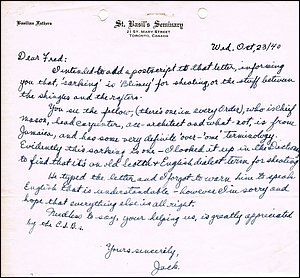 Basilian Fathers
St. Basil's Seminary
21 ST. MARY STREET
TORONTO, CANADA
Wed, Oct, 23/40
Dear Fred:
I intended to add a postscript to that letter, informing
you that, 'sarking' is 'Blimey' for sheating or the stuff between
the shingles and the rafters.
You see the fellow - (there's one in every Order), who is chief
mason, head carpenter, ace architect and what not, is from
Jamaica, and has some very definite 'over-'ome' terminology.
Evidently this sarking is one - I looked it up in the Dictionary
to find that it's an old Scotch & English dialect term for sheeting.
He typed the letter and I forgot to warn him to speak
English that is understandable - however I'm sorry and
hope that everything else is all right.
Needless to say, your helping us, is greatly appreciated
by the
Yours sincerely,
Jack.